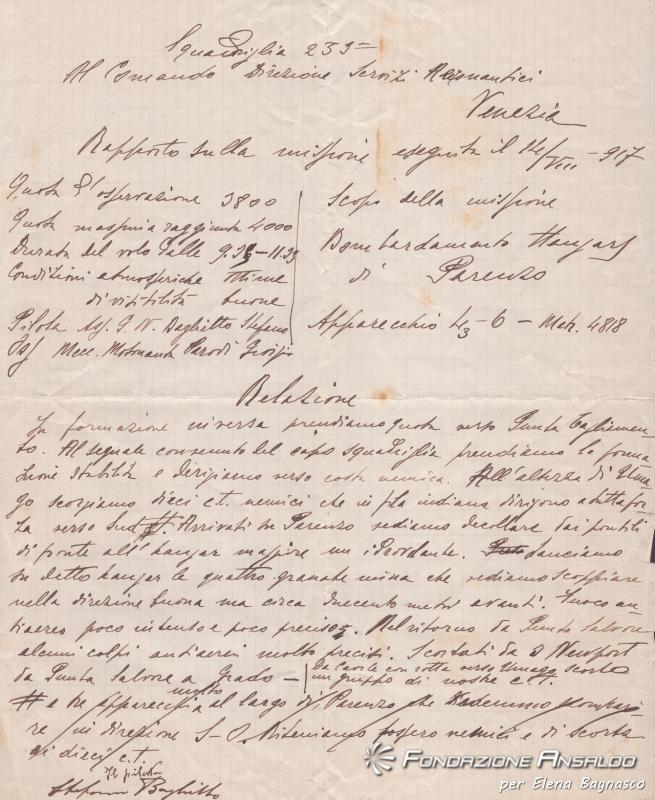 Squadriglia 239=
Al Comando Direzione Servizi Aeronautici
Venezia
Rapporto sulla missione eseguita il 14/VIII - 917
Quota d'osservazione 3800
Quota massima raggiunta 4000
Durata del volo dalle 9.35 - 11.35
Condizioni atmosferiche ottime
di visibilità buone
Pilota Asp. G. N. Baglietto Stefano
Oss Mecc. Motonauta Parodi Giorgio
Scopo della missione
Bombardamento Hangars
di Parenzo
Apparecchio L3 - 6 - Matr. 4818
Relazione
In formazione inversa prendiamo quota verso Punta Tagliamen-
to. Al segnale convenuto del capo squadriglia prendiamo la forma
zione stabilita e dirigiamo verso costa nemica. All'altezza di Uma
go scorgiamo dieci c.t. nemici che in fila indiana dirigono a tutta for-
za verso Sud #. Arrivati su Parenzo vediamo decollare dai pontili
di fronte all'hangar maggiore un idrovolante. Lanciamo
su detto hangar le quattro granate mina che vediamo scoppiare
nella direzione buona ma circa duecento metri avanti. Fuoco an-
tiaereo poco intenso e poco preciso. Nel ritorno da Punta Salvore
alcuni colpi antiaerei molto precisi. Scortati da 2 Newport
da Punta Salvore a Grado - Da Caorle con rotta verso Umago scorto
un gruppo di nostre c.t.
# e tre apparecchi molto al largo di Parenzo che vedemmo scompari-
re in direzione S-O. Riteniamo fossero nemici e di scorta
ai dieci c.t.
Il pilota
Stefano Baglietto
Fondazione Ansaldo
per Elena Bagnasco